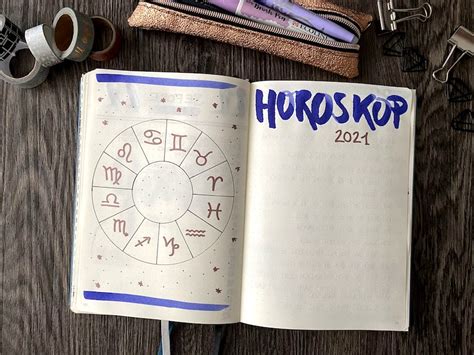 ♋ ♊
♌ ♉
♍ ♈
♎ ♓
♏ ♒
♐ ♑
HOROSKOP
2021